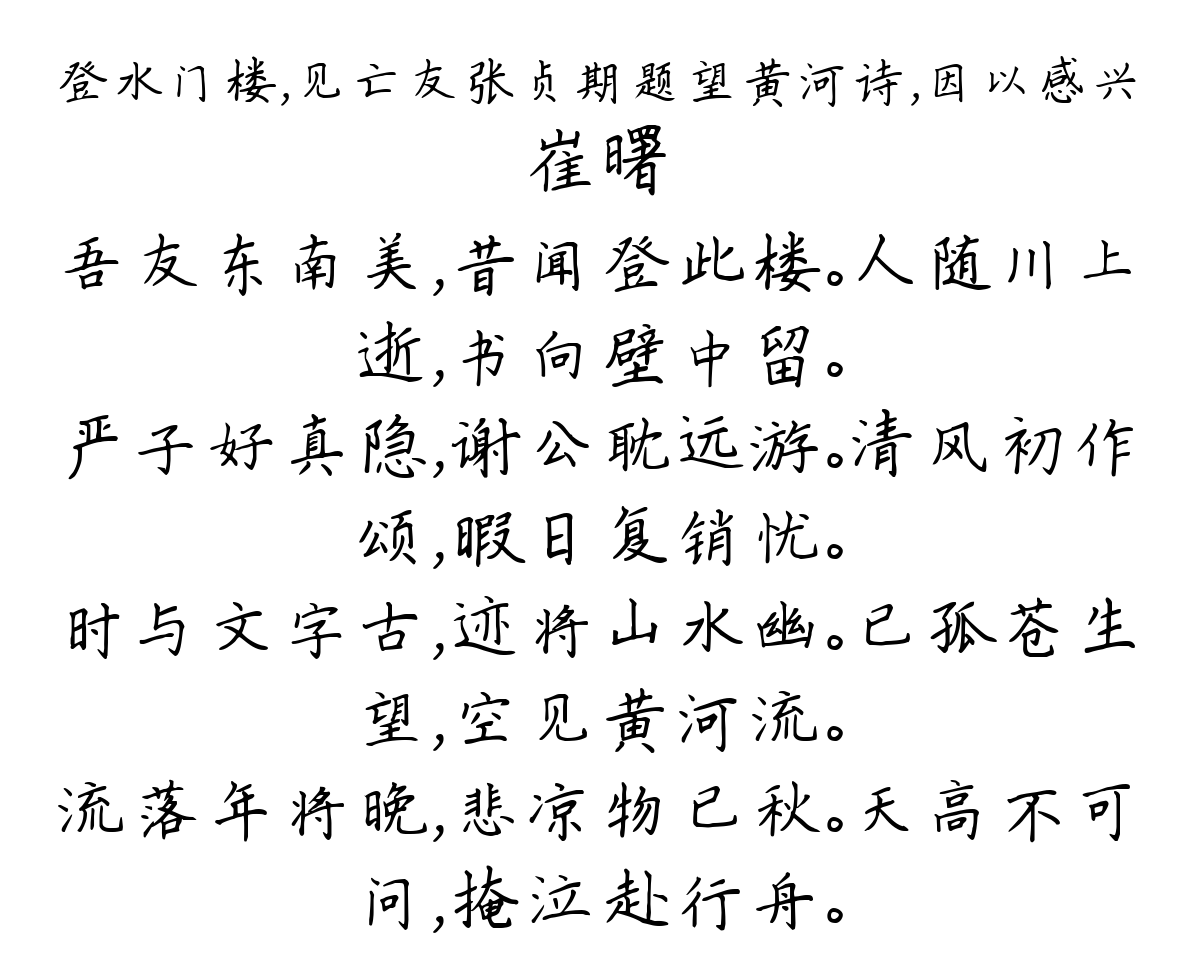 登水门楼,见亡友张贞期题望黄河诗,因以感兴
崔曙
吾友东南美,昔闻登此楼。人随川上
逝,书向壁中留。
严子好真隐,谢公耽远游。清风初作
颂,暇日复销忧。
时与文字古,迹将山水幽。已孤苍生
望,空见黄河流。
流落年将晚,悲凉物已秋。天高不可
问,掩泣赴行舟。